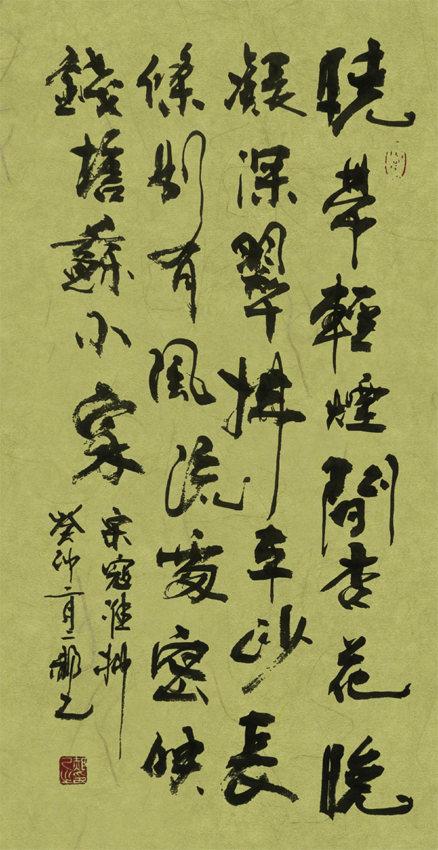 曉帶輕煙間杏花晚
凝深翠拂平沙長
條別有風流處密映
錢塘蘇小家
宋寇准柳
癸卯二月